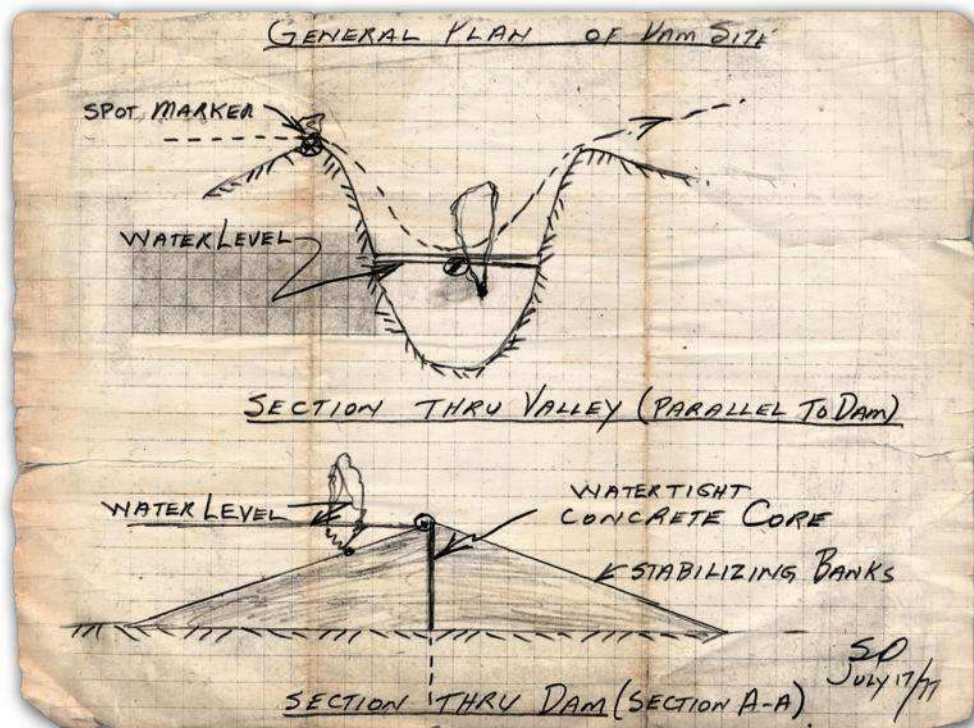 GENERAL PLAN OF DAM SITE
SPOT MARKER
WATER LEVEL
SECTION THRU VALLEY (PARALLEL TO DAM)
WATER LEVEL
WATERTIGHT
CONCRETE CORE
STABILIZING BANKS
SD
JULY 17/77
SECTION THRU DAM (SECTION A-A)